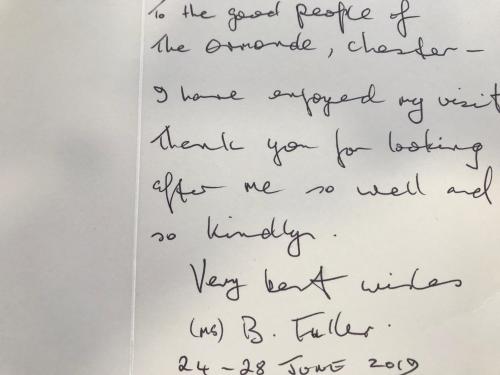 To the good people of
The Ormonde, Chester –
I have enjoyed my visit
Thank you for looking
after me so well and
so kindly.
Very best wishes
(MS) B. Fuller.
24 – 28 JUNE 2019